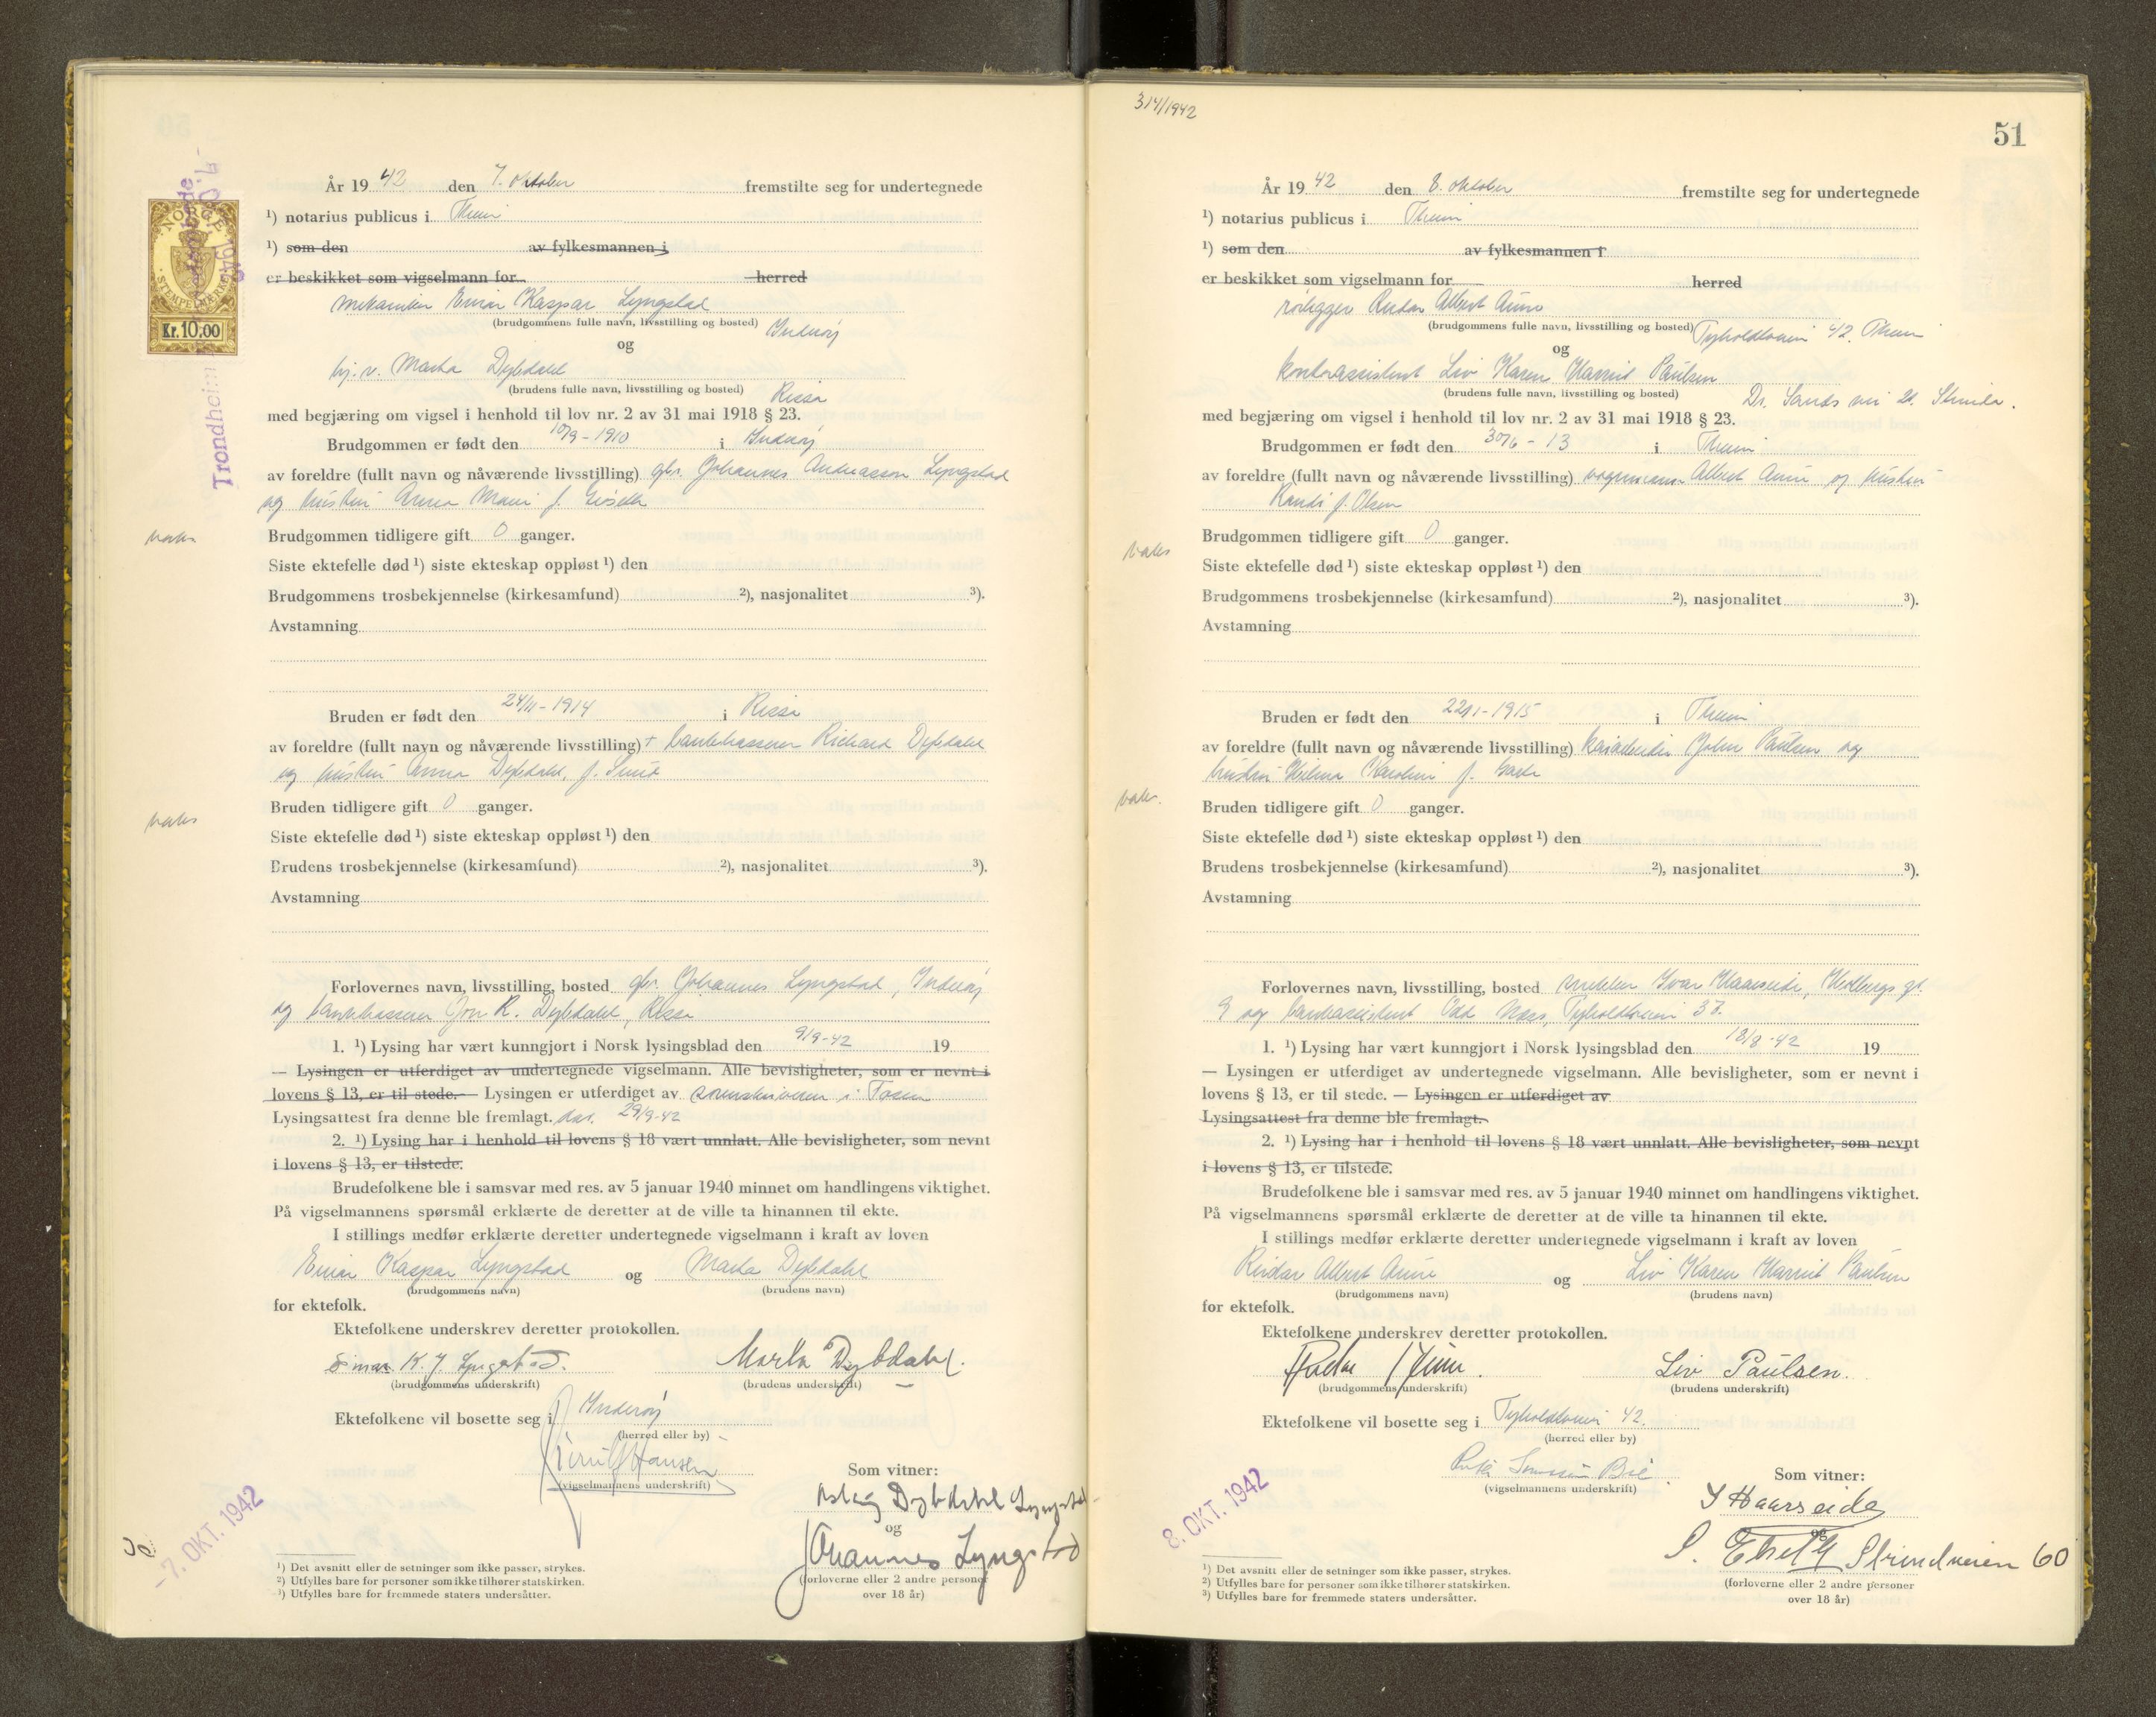 År 19 42 den 7. oktober fremstilte seg for undertegnede
¹) notarius publicus i Theim
¹) som den av fylkesmannen i
er beskikket som vigselmann for herred
mekaniker Einar Kaspar Lyngstad
(brudgommens fulle navn, livsstilling og bosted) Inderøy
og
hj.v. Marta Dybdahl
(brudens fulle navn, livsstilling og bosted) Rissa
med begjæring om vigsel i henhold til lov nr. 2 av 31 mai 1918 § 23.
Brudgommen er født den 10/9-1910 i Inderøy
av foreldre (fullt navn og nåværende livsstilling) gbr. Johannes Andreassen Lyngstad
og hustru Anna Marie f.
Brudgommen tidligere gift 0 ganger.
Siste ektefelle død ¹) siste ekteskap oppløst ¹) den
Brudgommens trosbekjennelse (kirkesamfund) ²), nasjonalitet ³).
Avstamning
Bruden er født den 24/11-1914 i Rissa
av foreldre (fullt navn og nåværende livsstilling) + bankkasserer Richard Dybdahl
og hustru Anna Dybdahl, f.
Bruden tidligere gift 0 ganger.
Siste ektefelle død ¹) siste ekteskap oppløst ¹) den
Brudens trosbekjennelse (kirkesamfund) ²), nasjonalitet ³).
Avstamning
Forlovernes navn, livsstilling, bosted gbr. Johannes Lyngstad, Inderøy
og bankkasserer Jon R. Dybdahl, Rissa
1. ¹) Lysing har vært kunngjort i Norsk lysingsblad den 9/9-42 19
— Lysingen er utferdiget av undertegnede vigselmann. Alle bevisligheter, som er nevnt i
lovens § 13, er til stede. — Lysingen er utferdiget av sorenskriveren i Fosen
Lysingsattest fra denne ble fremlagt. dat. 29/9-42
2. ¹) Lysing har i henhold til lovens § 18 vært unnlatt. Alle bevisligheter, som nevnt
i lovens § 13, er tilstede.
Brudefolkene ble i samsvar med res. av 5 januar 1940 minnet om handlingens viktighet.
På vigselmannens spørsmål erklærte de deretter at de ville ta hinannen til ekte.
I stillings medfør erklærte deretter undertegnede vigselmann i kraft av loven
Einar Kaspar Lyngstad og Marta Dybdahl
(brudgommens navn) (brudens navn)
for ektefolk.
Ektefolkene underskrev deretter protokollen.
Einar K. J. Lyngstad. Marta Dybdahl.
(brudgommens underskrift) (brudens underskrift)
Ektefolkene vil bosette seg i Inderøy
(herred eller by)
Hansen
(vigselmannens underskrift)
Som vitner:
Dybdahl Lyngstad
og
Johannes Lyngstad
(forloverne eller 2 andre personer
over 18 år)
¹) Det avsnitt eller de setninger som ikke passer, strykes.
²) Utfylles bare for personer som ikke tilhører statskirken.
³) Utfylles bare for fremmede staters undersåtter.
-7. OKT. 1942
NORGE
STEMPELMERKE
Kr. 10.00
Trondheim
314/1942
51
År 19 42 den 8. oktober fremstilte seg for undertegnede
¹) notarius publicus i Theim
¹) som den av fylkesmannen i
er beskikket som vigselmann for herred
rørlegger Reidar Albert Aune
(brudgommens fulle navn, livsstilling og bosted) Tyholdtveien 42. Theim
og
kontorassistent Liv Karen Harriet Paulsen
(brudens fulle navn, livsstilling og bosted) Dr. Sands vei 21. Strinda.
med begjæring om vigsel i henhold til lov nr. 2 av 31 mai 1918 § 23.
Brudgommen er født den 30/6-13 i Theim
av foreldre (fullt navn og nåværende livsstilling) vognmann Albert Aune og hustru
Randi f. Olsen
Brudgommen tidligere gift 0 ganger.
Siste ektefelle død ¹) siste ekteskap oppløst ¹) den
Brudgommens trosbekjennelse (kirkesamfund) ²), nasjonalitet ³).
Avstamning
Bruden er født den 22/1-1915 i Theim
av foreldre (fullt navn og nåværende livsstilling) kaiarbeider John Paulsen og
hustru Karoline f.
Bruden tidligere gift 0 ganger.
Siste ektefelle død ¹) siste ekteskap oppløst ¹) den
Brudens trosbekjennelse (kirkesamfund) ²), nasjonalitet ³).
Avstamning
Forlovernes navn, livsstilling, bosted Ivar Haarseide, gt.
9 og bankassistent Odd Næss, Tyholdtveien 37.
1. ¹) Lysing har vært kunngjort i Norsk lysingsblad den 18/8-42 19
— Lysingen er utferdiget av undertegnede vigselmann. Alle bevisligheter, som er nevnt i
lovens § 13, er til stede. — Lysingen er utferdiget av
Lysingsattest fra denne ble fremlagt.
2. ¹) Lysing har i henhold til lovens § 18 vært unnlatt. Alle bevisligheter, som nevnt
i lovens § 13, er tilstede.
Brudefolkene ble i samsvar med res. av 5 januar 1940 minnet om handlingens viktighet.
På vigselmannens spørsmål erklærte de deretter at de ville ta hinannen til ekte.
I stillings medfør erklærte deretter undertegnede vigselmann i kraft av loven
Reidar Albert Aune og Liv Karen Harriet Paulsen
(brudgommens navn) (brudens navn)
for ektefolk.
Ektefolkene underskrev deretter protokollen.
Reidar Aune. Liv Paulsen.
(brudgommens underskrift) (brudens underskrift)
Ektefolkene vil bosette seg i Tyholdtveien 42.
(herred eller by)
(vigselmannens underskrift)
Som vitner:
I Haarseide
og
Strindveien 60
(forloverne eller 2 andre personer
over 18 år)
8. OKT. 1942
¹) Det avsnitt eller de setninger som ikke passer, strykes.
²) Utfylles bare for personer som ikke tilhører statskirken.
³) Utfylles bare for fremmede staters undersåtter.